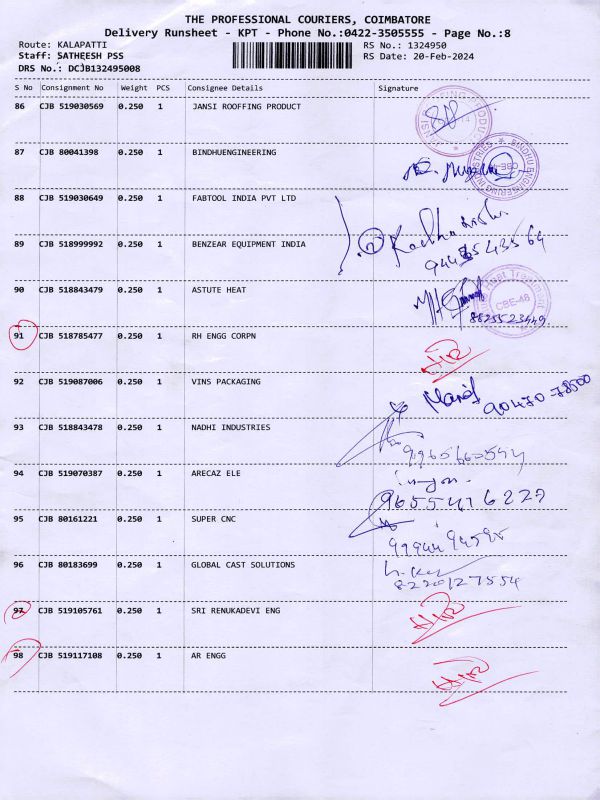 THE PROFESSIONAL COURIERS, COIMBATORE
Delivery Runsheet - KPT - Phone No.:0422-3505555 - Page No.:8
Route: KALAPATTI RS No.: 1324950
Staff: SATHEESH PSS RS Date: 20-Feb-2024
DRS No.: DCJB132495008
S No Consignment No Weight PCS Consignee Details Signature
86 CJB 519030569 0.250 1 JANSI ROOFFING PRODUCT
87 CJB 80041398 0.250 1 BINDHUENGINEERING
88 CJB 519030649 0.250 1 FABTOOL INDIA PVT LTD
89 CJB 518999992 0.250 1 BENZEAR EQUIPMENT INDIA
90 CJB 518843479 0.250 1 ASTUTE HEAT
CBE-48
8825523449
91 CJB 518785477 0.250 1 RH ENGG CORPN
92 CJB 519087006 0.250 1 VINS PACKAGING
90470-78500
93 CJB 518843478 0.250 1 NADHI INDUSTRIES
94 CJB 519070387 0.250 1 ARECAZ ELE
9655416227
95 CJB 80161221 0.250 1 SUPER CNC
96 CJB 80183699 0.250 1 GLOBAL CAST SOLUTIONS
8220127554
97 CJB 519105761 0.250 1 SRI RENUKADEVI ENG
98 CJB 519117108 0.250 1 AR ENGG